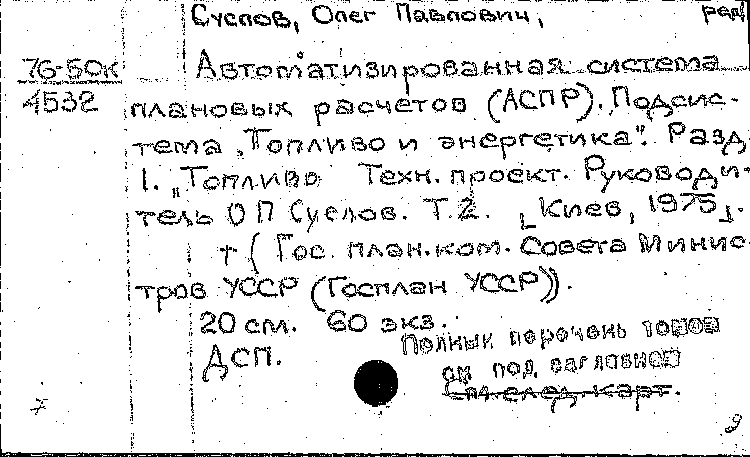 Суслов, Олег Павлович, ред.
76-50к
4532
Автоматизированная система
плановых расчетов (АСПР). Подсис-
тема „Топливо и энергетика". Разд.
1. „Топливо Техн. проект. Руководи-
тель О П Суслов. Т.2. [Киев, 1975].
† (Гос. план. ком. Совета Минис-
тров УССР (Госплан УССР)).
20 см. 60 экз.
ДСП.
Полный перечень томов
см под заглавной
См след. карт.
9